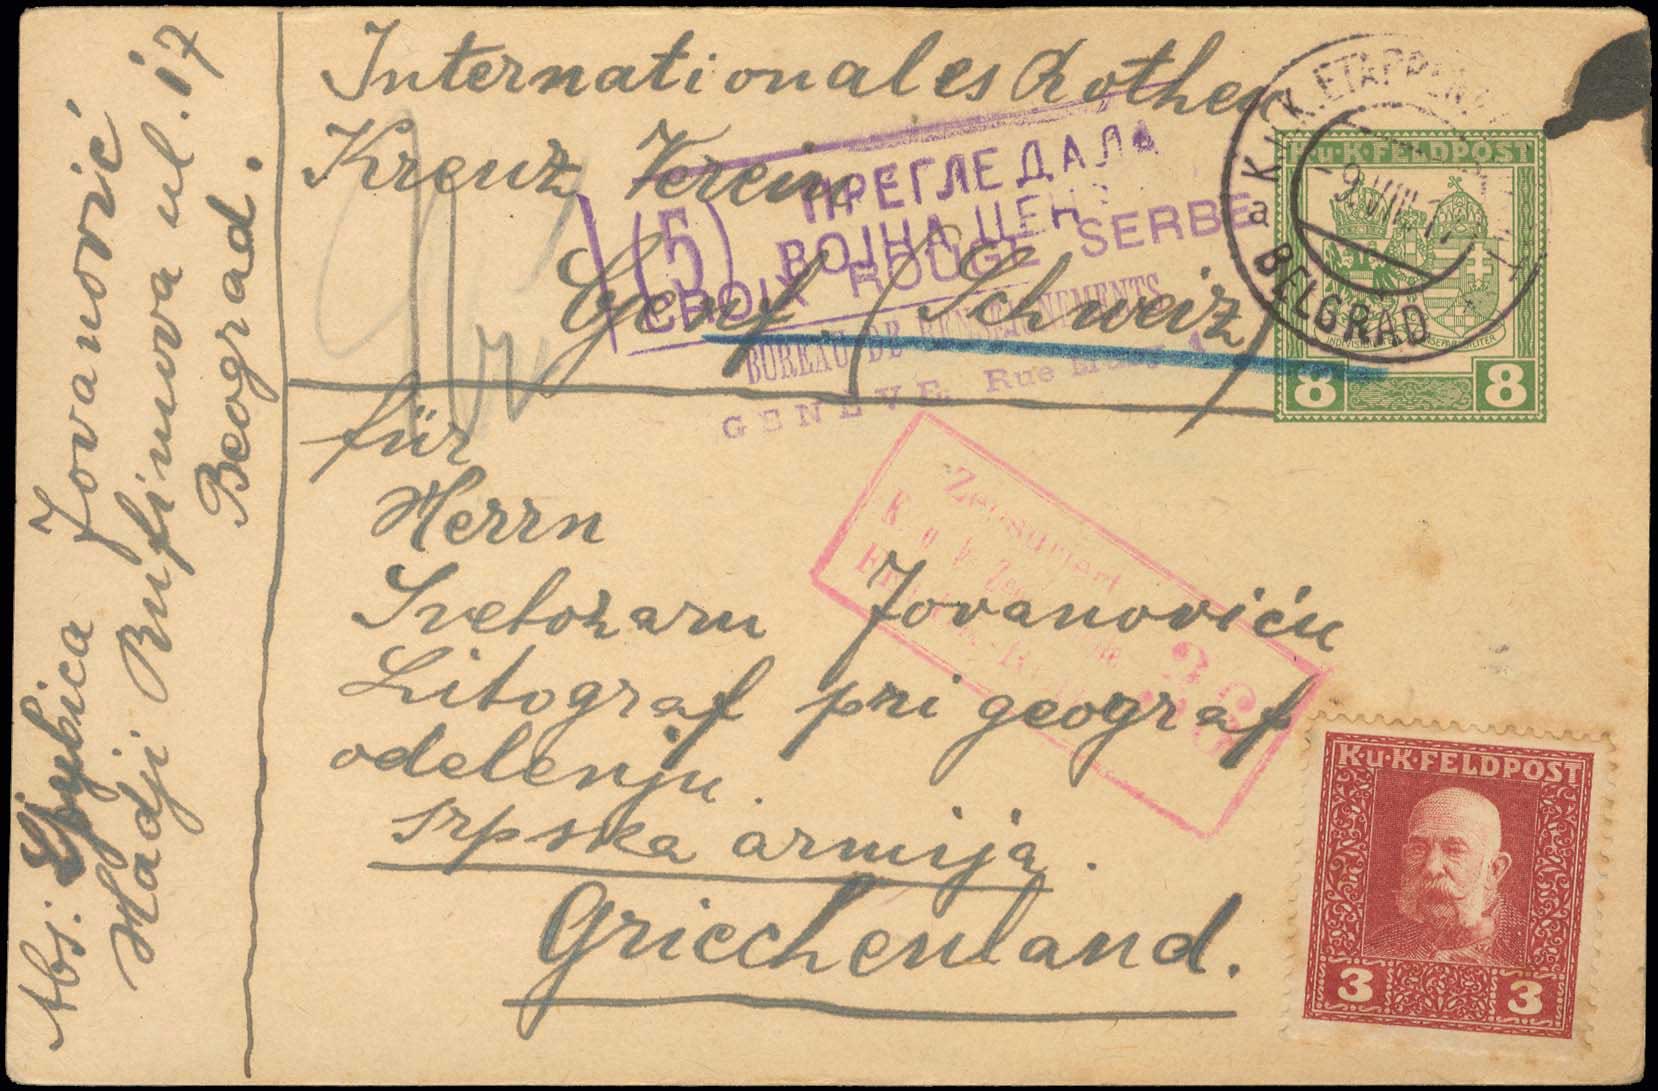 Internationales Rothes
Kreuz Verein
Genf (Schweiz)
für
Herrn
Svetozaru Jovanoviću
Litograf pri geograf
odelenju.
srpska armija.
Griechenland.
Abs: Ljubica Jovanović
Hadji Rufimova ul. 17
Beograd.
(5) ПРЕГЛЕДАЛА
ВОЈНА ЦЕН
CROIX ROUGE SERBE
BUREAU DE RENSEIGNEMENTS
GENÈVE, Rue
K.u.K. ETAPPEN
9.VIII.17
a
BELGRAD
K·u·K·FELDPOST
8 8
Zensuriert
K. u. k.
36
K·u·K·FELDPOST
3 3